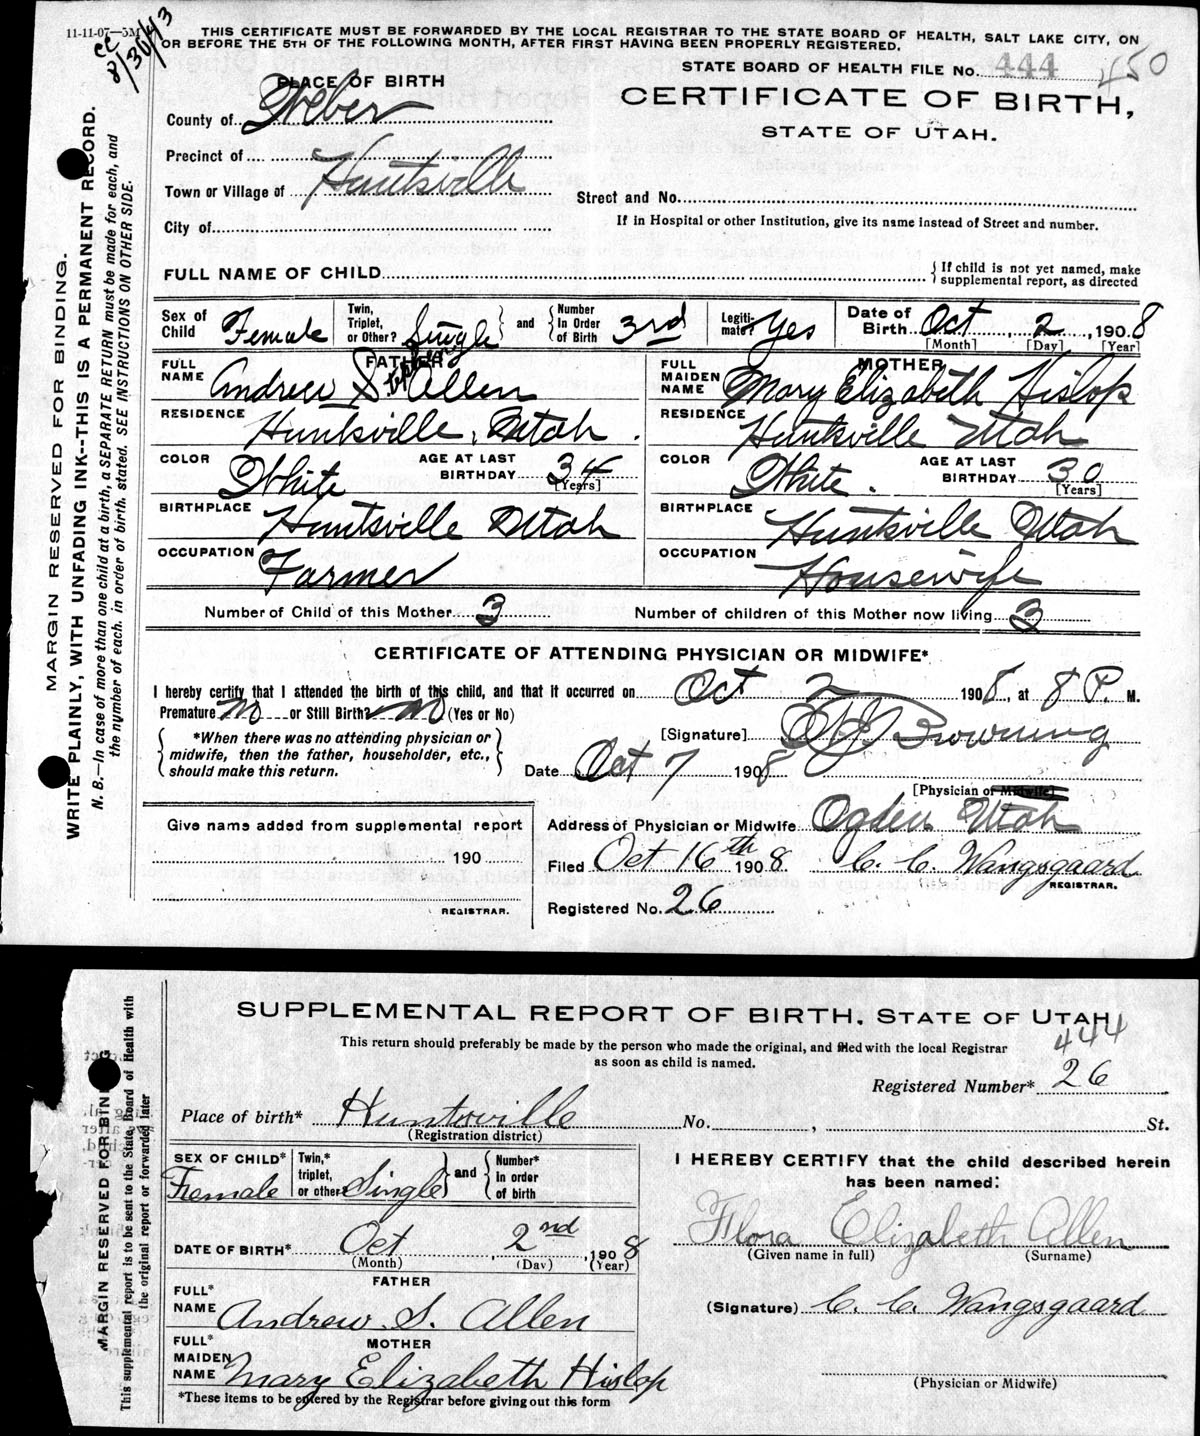 11-11-07—5M
cc
8/30/43
THIS CERTIFICATE MUST BE FORWARDED BY THE LOCAL REGISTRAR TO THE STATE BOARD OF HEALTH, SALT LAKE CITY, ON
OR BEFORE THE 5TH OF THE FOLLOWING MONTH, AFTER FIRST HAVING BEEN PROPERLY REGISTERED.
STATE BOARD OF HEALTH FILE No. 444 450
CERTIFICATE OF BIRTH,
STATE OF UTAH.
PLACE OF BIRTH
County of Weber
Precinct of
Town or Village of Huntsville
City of
Street and No.
If in Hospital or other Institution, give its name instead of Street and number.
FULL NAME OF CHILD
{ If child is not yet named, make
supplemental report, as directed
Sex of Child Female
Twin, Triplet, or Other? Single } and { Number In Order of Birth 3rd
Legiti-mate? Yes
Date of Birth Oct, 2, 1908
[Month] [Day] [Year]
FATHER
FULL NAME Andrew S. Allen
RESIDENCE Huntsville, Utah.
COLOR White AGE AT LAST BIRTHDAY 34 [Years]
BIRTHPLACE Huntsville Utah
OCCUPATION Farmer
MOTHER
FULL MAIDEN NAME Mary Elizabeth Hislop
RESIDENCE Huntsville Utah
COLOR White. AGE AT LAST BIRTHDAY 30 [Years]
BIRTHPLACE Huntsville Utah
OCCUPATION Housewife
Number of Child of this Mother 3 Number of children of this Mother now living 3
CERTIFICATE OF ATTENDING PHYSICIAN OR MIDWIFE*
I hereby certify that I attended the birth of this child, and that it occurred on Oct 2 1908, at 8 P. M.
Premature No or Still Birth? No (Yes or No)
{ *When there was no attending physician or
midwife, then the father, householder, etc.,
should make this return. }
[Signature] Browning
Date Oct 7 1908
[Physician or Midwife]
Address of Physician or Midwife Ogden Utah
Filed Oct 16th 1908 C. C. Wangsgaard
REGISTRAR.
Registered No. 26
Give name added from supplemental report
190
REGISTRAR.
MARGIN RESERVED FOR BINDING.
WRITE PLAINLY, WITH UNFADING INK--THIS IS A PERMANENT RECORD.
N. B.—In case of more than one child at a birth, a SEPARATE RETURN must be made for each, and
the number of each, in order of birth, stated. SEE INSTRUCTIONS ON OTHER SIDE.
SUPPLEMENTAL REPORT OF BIRTH, STATE OF UTAH
444
This return should preferably be made by the person who made the original, and filed with the local Registrar
as soon as child is named.
Registered Number* 26
Place of birth* Huntsville No. , St.
(Registration district)
SEX OF CHILD* Female
Twin,* triplet, or other Single } and { Number* in order of birth
DATE OF BIRTH* Oct, 2nd, 1908
(Month) (Day) (Year)
FATHER
FULL* NAME Andrew S. Allen
MOTHER
FULL* MAIDEN NAME Mary Elizabeth Hislop
*These items to be entered by the Registrar before giving out this form
I HEREBY CERTIFY that the child described herein
has been named:
Flora Elizabeth Allen
(Given name in full) (Surname)
(Signature) C. C. Wangsgaard
(Physician or Midwife)
MARGIN RESERVED FOR BINDING
This supplemental report is to be sent to the State Board of Health with
the original report or forwarded later